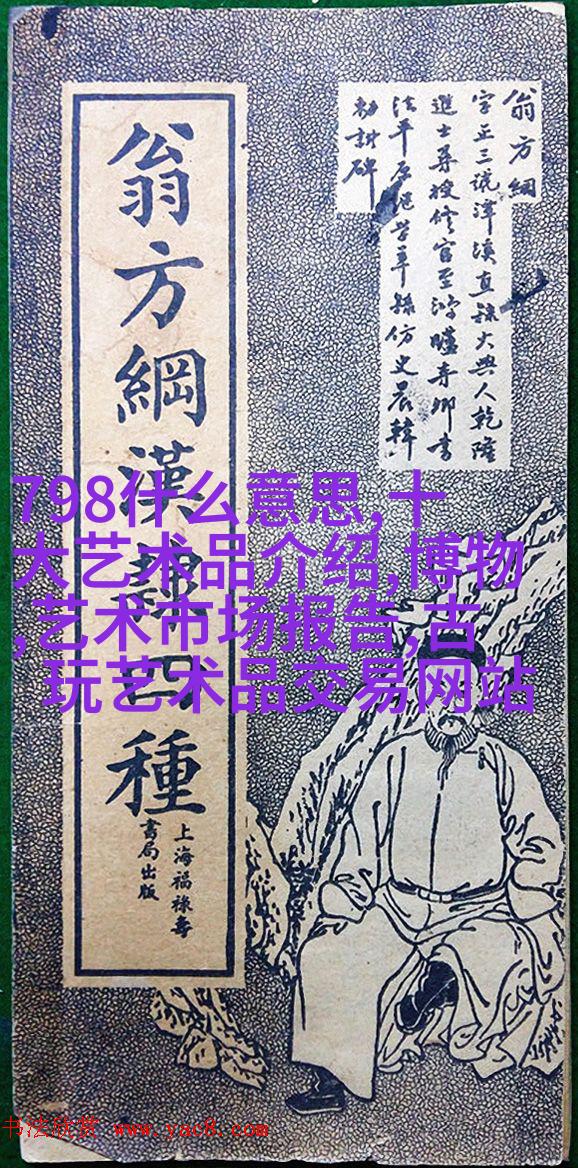 翁方綱
字正三號潭溪直隸大興人乾隆
進士尋授修官至鴻臚寺卿書
法平原繼苦率
孫仿史晨韓
勅討碑
翁方綱漢隸四種
上海福祿壽
書局出版
798什么意思,十
大艺术品介绍,博物
,艺术市场报告,古
玩艺术品交易网站
书法欣赏 www.yac8.com